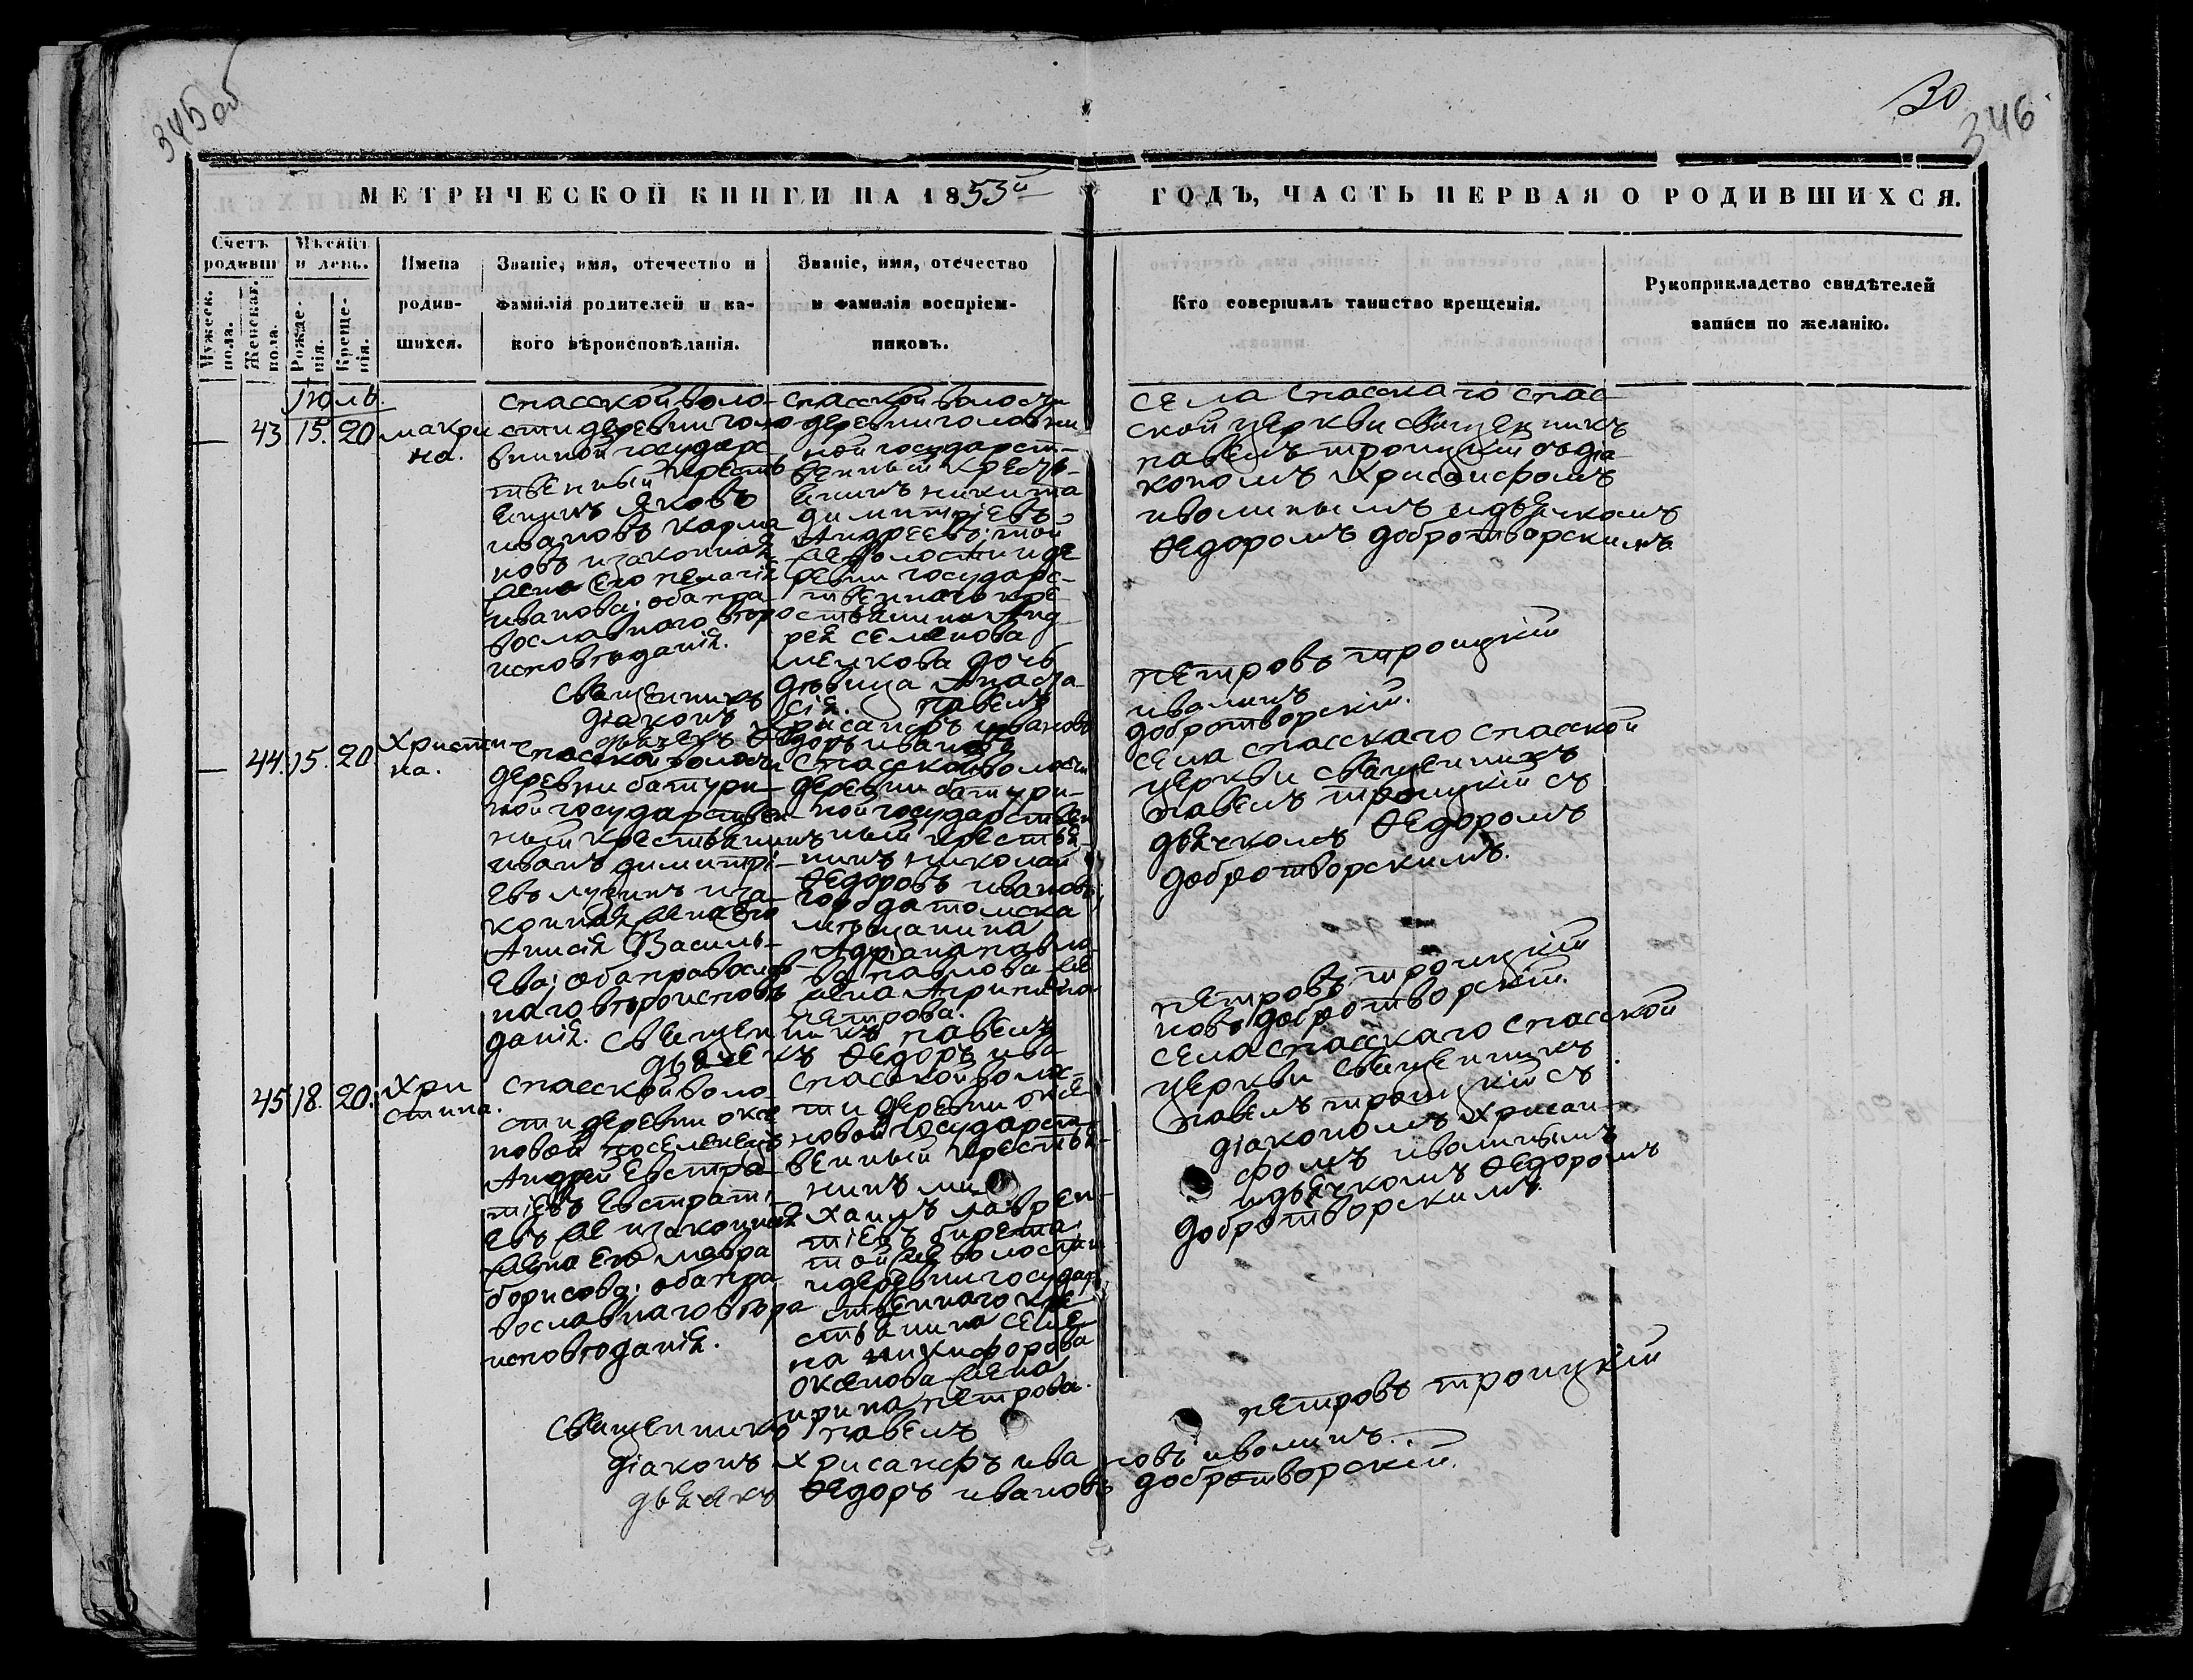 345 об
30
346
МЕТРИЧЕСКОЙ КНИГИ НА 1853й
ГОДЪ, ЧАСТЬ ПЕРВАЯ О РОДИВШИХСЯ.
Счетъ родивш
Мѣсяцъ и день.
Мужеск. пола.
Женскаг. пола.
Рожде-нія.
Креще-нія.
Имена
родив-
шихся.
Званіе, имя, отечество и
фамилія родителей и ка-
кого вѣроисповѣданія.
Званіе, имя, отечество
и фамилія воспріем-
никовъ.
Кто совершалъ таинство крещенія.
Рукоприкладство свидѣтелей
записи по желанію.
Июль
— 43. 15. 20
макри
на.
спасской воло-
сти деревни голо
вниной государс
твенный крестья
енинъ Яковъ
ивановъ карма
новъ и законная
жена его пелагія
иванова; оба пра
вославнаго вѣро
исповѣданія.
спасской волости
деревни головни
ной государст-
венный кресть-
енинъ никита
димитріевъ
Андреевъ; той
же волости и де
ревни государс-
твеннаго кре-
стьянина Анд
рея семенова
дочь
дѣвица Анаста-
сія.
села спасскаго спас-
ской церкви священникъ
павелъ троицкій съ діа
кономъ Хрисанфомъ
иволинымъ и дьячкомъ
Ѳедоромъ добротворскимъ
Священникъ павелъ петровъ троицкій
діаконъ Хрисанфъ ивановъ иволинъ
дьячекъ Ѳедоръ ивановъ добротворскій.
— 44. 15. 20
Христи
на.
спасской волости
деревни батури-
ной государствен
ный крестьянинъ
иванъ димитрі-
евъ лучинъ и за-
конная жена его
Анисія Василь-
ева; оба православ
наго вѣроисповѣ
данія.
спасской волости
деревни батури-
ной государствен
ный крестья-
нинъ николай
Ѳедоровъ ивановъ;
города томска
мѣщанина
Адріана павло
ва павлова
жена Агрипена
петрова.
села спасскаго спасской
церкви священникъ
павелъ троицкій съ
дьячкомъ Ѳедоромъ
добротворскимъ.
Священникъ павелъ петровъ троицкій
дьячекъ Ѳедоръ ива новъ добротворскій.
45 18. 20.
Хри
стина.
спасской воло
сти деревни окѣ
новой поселенецъ
Андрей Евстра-
тіевъ Евстраті
евъ же и законная
жена его мавра
борисова; оба пра
вославнаго вѣро
исповѣданія.
спасской волос-
ти деревни окѣ-
новой государст-
венный крестья-
нинъ ми
хаилъ лаврен-
тіевъ
той же волости
и деревни государ
ственнаго кре
стьянина семе
на никифорова
окѣнова жена
ирина петрова.
села спасскаго спасской
церкви священникъ
павелъ троицкій съ
діакономъ Хрисан-
фомъ иволинымъ
и дьячкомъ Ѳедоромъ
добротворскимъ.
Священникъ павелъ петровъ троицкій
діаконъ Хрисанфъ ива новъ иволинъ.
дьячекъ Ѳедоръ ивановъ добротворскій.